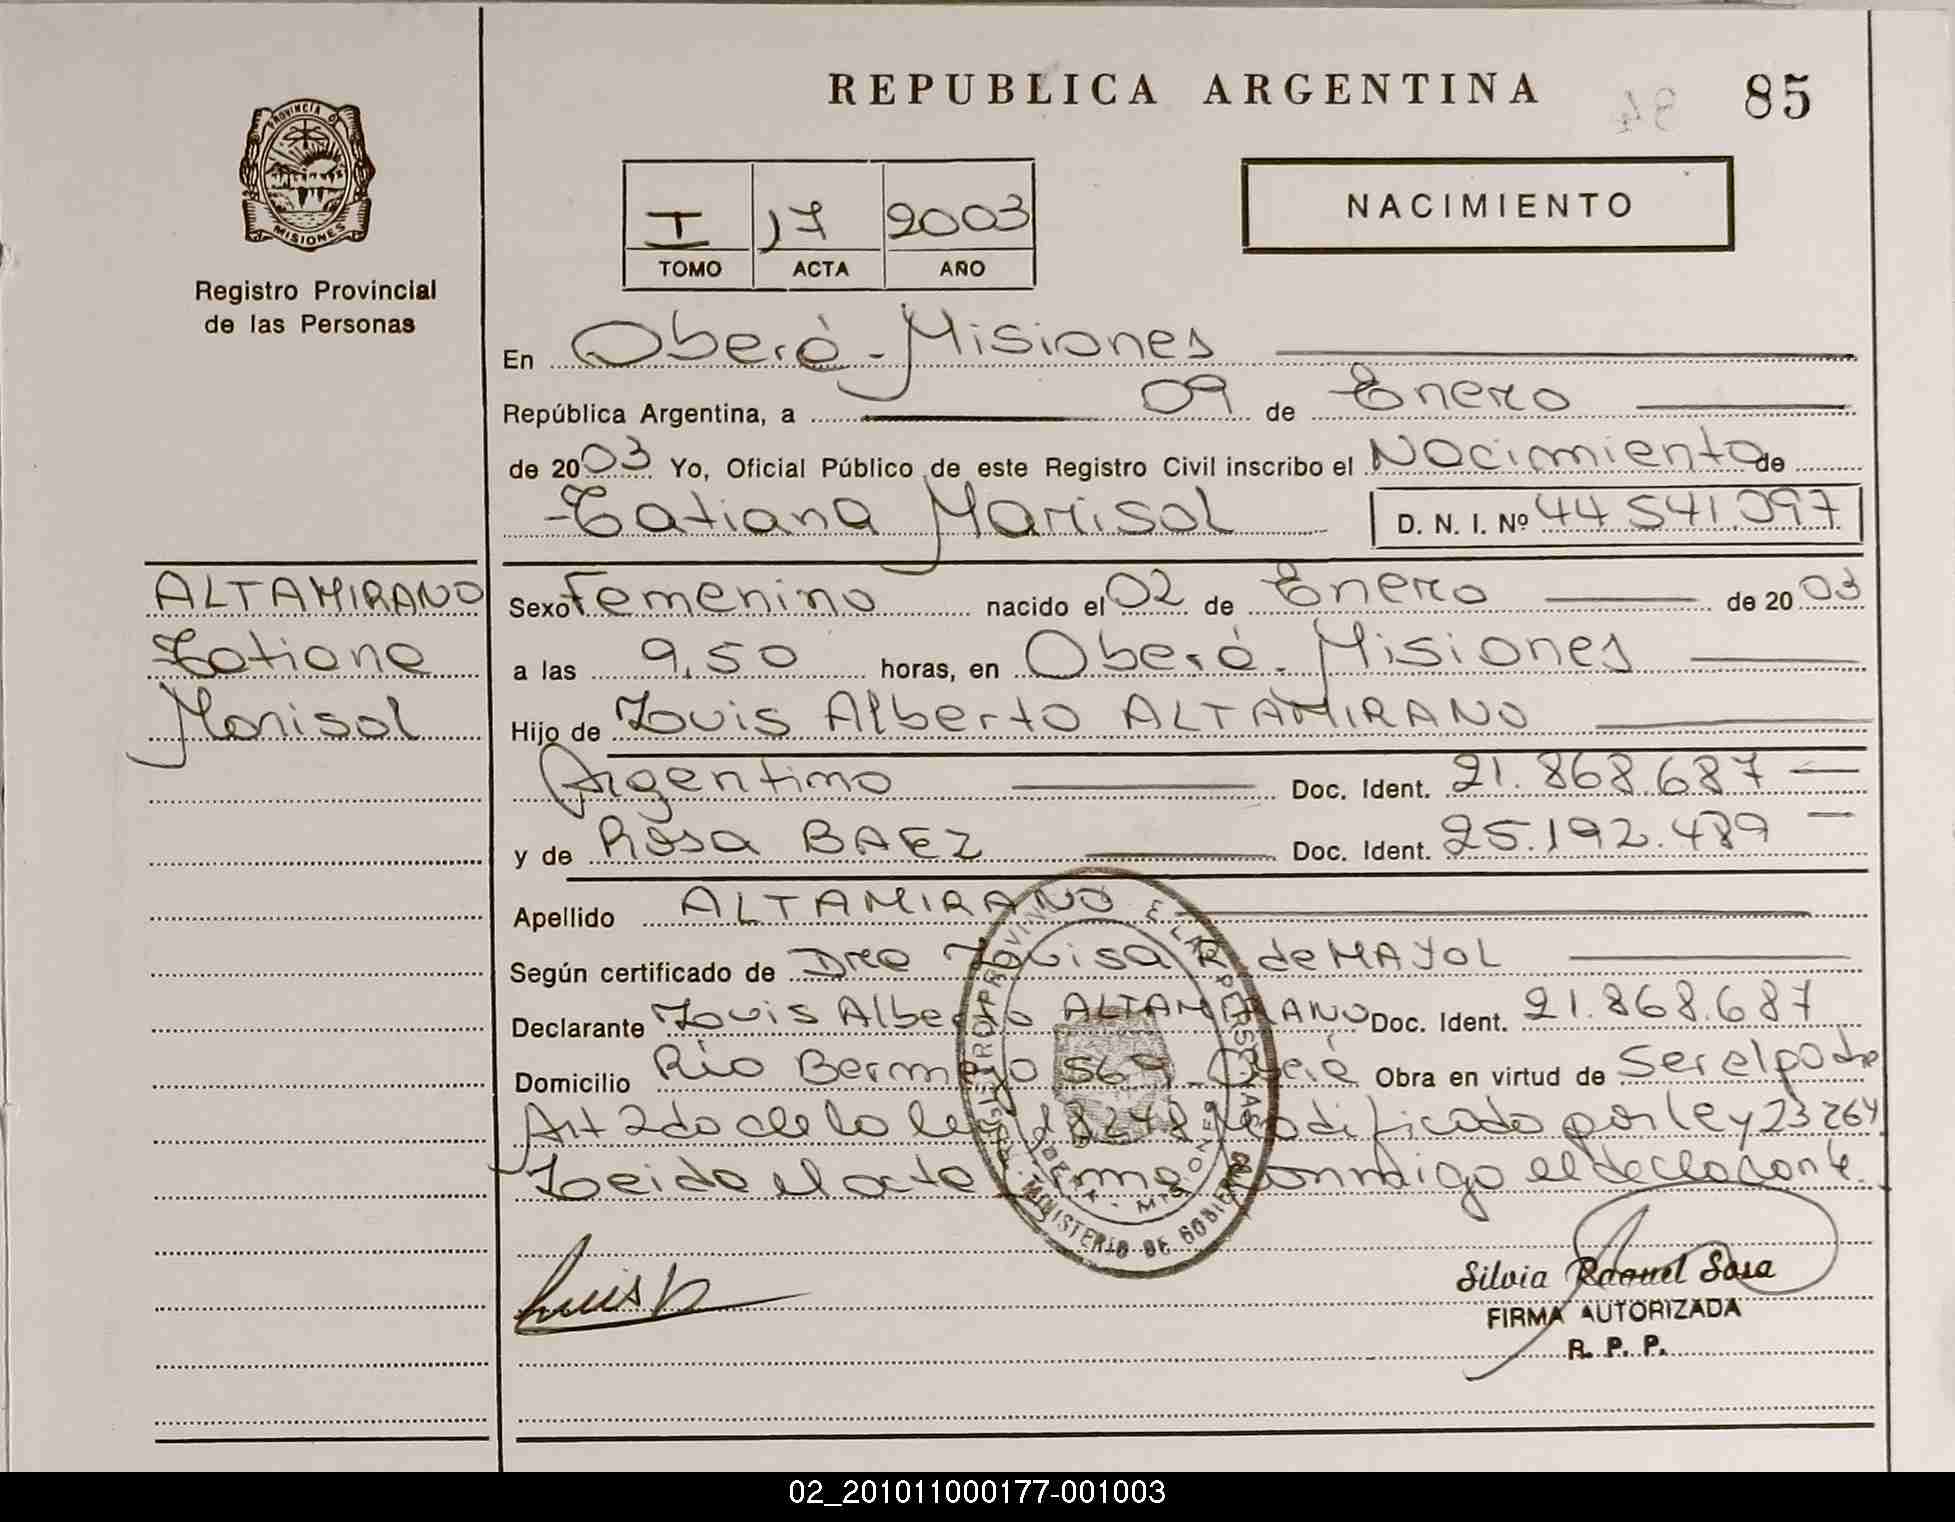 REPUBLICA ARGENTINA
85
PROVINCIA D
MISIONES
Registro Provincial
de las Personas
I 17 2003
TOMO ACTA AÑO
NACIMIENTO
En Oberá - Misiones
República Argentina, a 09 de Enero
de 2003 Yo, Oficial Público de este Registro Civil inscribo el Nacimiento de
Tatiana Marisol D. N. I. Nº 44 541.097
ALTAMIRANO
Tatiana
Marisol
Sexo Femenino nacido el 02 de Enero de 2003
a las 9,50 horas, en Oberá - Misiones
Hijo de Louis Alberto ALTAMIRANO
Argentino Doc. Ident. 21.868.687
y de Rosa BAEZ Doc. Ident. 25.192.489
Apellido ALTAMIRANO
Según certificado de Dra Louisa R de MAYOL
Declarante Louis Alberto ALTAMIRANO Doc. Ident. 21.868.687
Domicilio Río Bermejo 569 - Oberá Obra en virtud de Ser el padre
Art 2do de la ley 18248 Modificado por ley 23264
Leida el acta firma conmigo el declarante.
MINISTERIO DE GOBIERNO
Luis
Silvia Raquel Sosa
FIRMA AUTORIZADA
R. P. P.
02_201011000177-001003